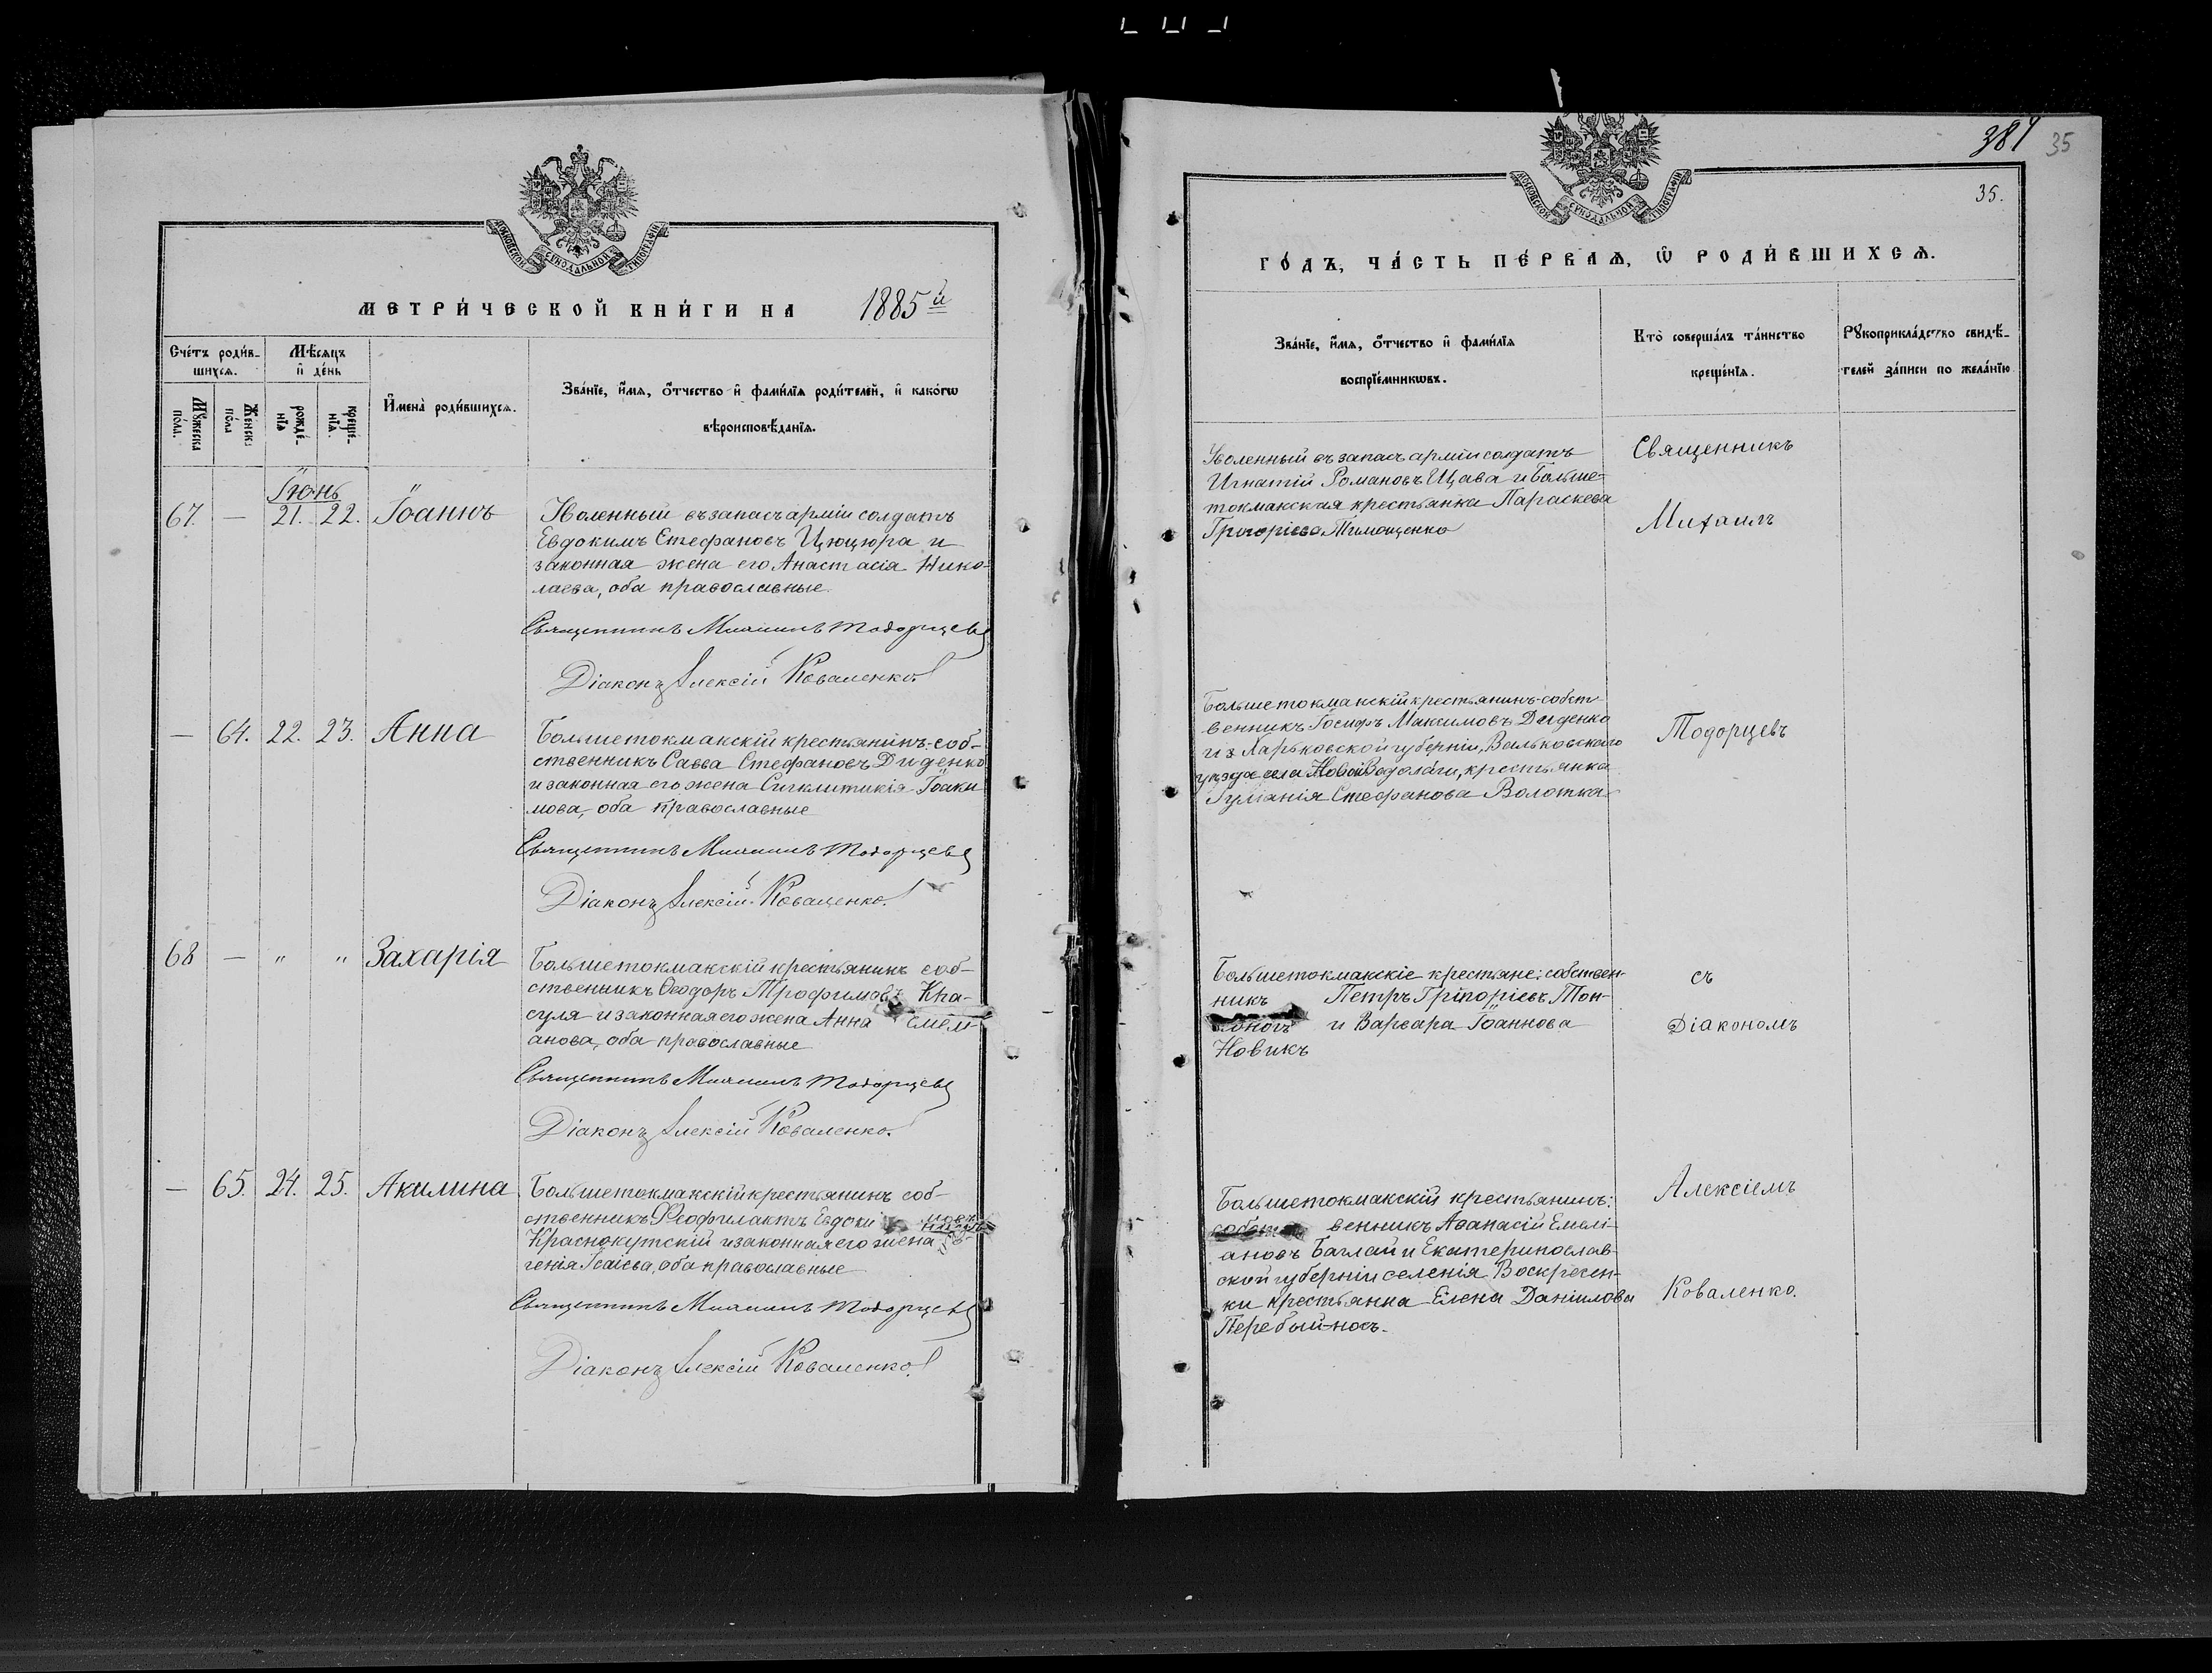 МОСКОВСКОЙ СУНОДАЛЬНОЙ ТИПОГРАФІИ
МЕТРИ́ЧЕСКОЙ КНИ́ГИ НА 1885й
Сче́тъ роди́в-
шихсѧ.
Мѣ́сѧцъ
и҆ де́нь
Мꙋ́жеска
полъ.
Же́нска
по́лъ
рожде́-
нїѧ
креще́-
нїѧ.
И҆мена̀ роди́вшихсѧ.
Зва́нїе, и҆́мѧ, ѻ҆́тчество и҆ фамі́лїѧ роди́телей, и҆ како́гѡ
вѣроисповѣ́данїѧ.
Іюнь
67. — 21. 22. Іоаннъ
Уволенный въ запасъ арміи солдатъ
Евдокимъ Стефановъ Цюцюра и
законная жена его Анастасія Нико-
лаева, оба православные.
Священникъ Михаилъ Тодорцевъ
Діаконъ Алексій Коваленко.
— 64. 22. 23. Анна
Большетокмакскій крестьянинъ-соб-
ственникъ Савва Стефановъ Диденко
и законная его жена Синклитикія Іоаки
мова, оба православные
Священникъ Михаилъ Тодорцевъ
Діаконъ Алексій Коваленко.
68 — " " Захарія
Большетокмакскій крестьянинъ соб-
ственникъ Ѳеодоръ Трофимовъ Кра-
суля и законная его жена Анна Емел-
анова, оба православные
Священникъ Михаилъ Тодорцевъ
Діаконъ Алексій Коваленко.
— 65. 24. 25. Акилина
Большетокмакскій крестьянинъ соб-
ственникъ Феофилактъ Евдоки мовъ
Краснокутскій и законная его жена Ев-
генія Исаіева, оба православные
Священникъ Михаилъ Тодорцевъ
Діаконъ Алексій Коваленко.
387 35
35.
МОСКОВСКОЙ СУНОДАЛЬНОЙ ТИПОГРАФІИ
ГО́ДЪ, ЧА́СТЬ ПЕ́РВАѦ, Ѡ҆ РОДИ́ВШИХСѦ.
Зва́нїе, и҆́мѧ, ѻ҆́тчество и҆ фамі́лїѧ
воспрїе́мникѡвъ.
Кто̀ соверша́лъ та́инство
креще́нїѧ.
Рꙋкоприкла́дство свидѣ́-
телей за́писи по жела́нїю
Уволенный въ запасъ арміи солдатъ
Игнатій Романовъ Щава и Больше-
токмакская крестьянка Параскева
Григоріева Тимощенко
Большетокмакскій крестьянинъ-собст
венникъ Іосифъ Максимовъ Диденко
и з Харьковской губерніи, Вальковскаго
уѣзда села Новой Водолаги, крестьянка
Іуліанія Стефанова Волотка
Большетокмакскіе крестьяне: собствен-
никъ Петръ Григоріевъ Тон-
коногъ и Варвара Іоаннова
Новикъ
Большетокмакскій крестьянинъ:
собст венникъ Аѳанасій Емелі-
ановъ Баглай и Екатеринослав-
ской губерніи селенія Воскресен-
ки крестьянка Елена Даніилова
Перебый-носъ.
Священникъ
Михаилъ
Тодорцевъ
съ
Діакономъ
Алексіемъ
Коваленко.